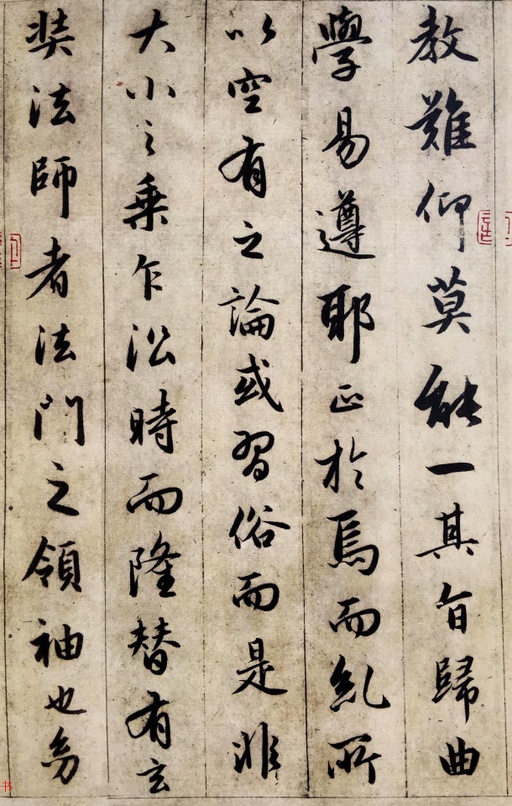 教難仰莫能一其旨歸曲
學易遵耶正於焉而紏所
以空有之論或習俗而是非
大小之乘乍㳂時而隆替有玄
奘法師者法門之領袖也㓜